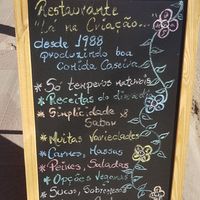 Restaurante
"Lá na Criação..."
desde 1988
produzindo boa
Comida Caseira
* Só temperos naturais
* Receitas do dia a dia
* Simplicidade e
Sabor
* Muitas Variedades
* Carnes, Massas
* Peixes, Saladas
* Opções Veganas
* Sucos, Sobremesas